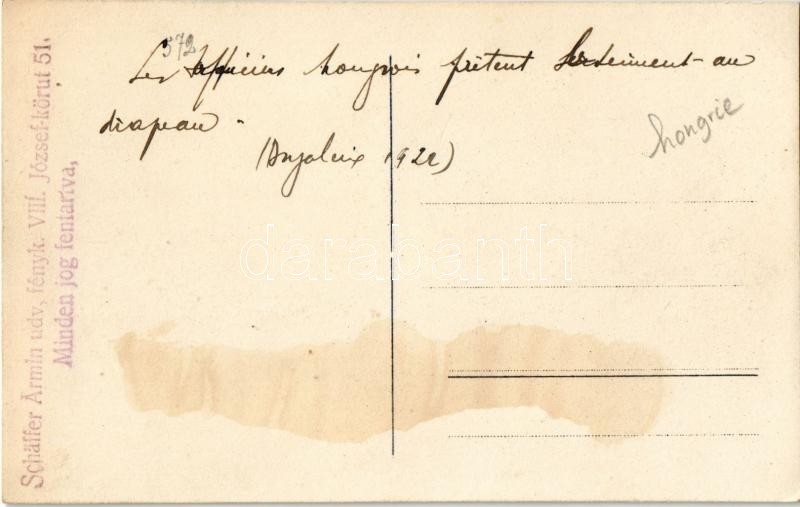 572
Les officiers hongrois prêtent serment au
drapeau.
1922)
hongrie
Schäffer Ármin udv, fényk. VIII. József-körut 51.
Minden jog fentartva,
darabanth